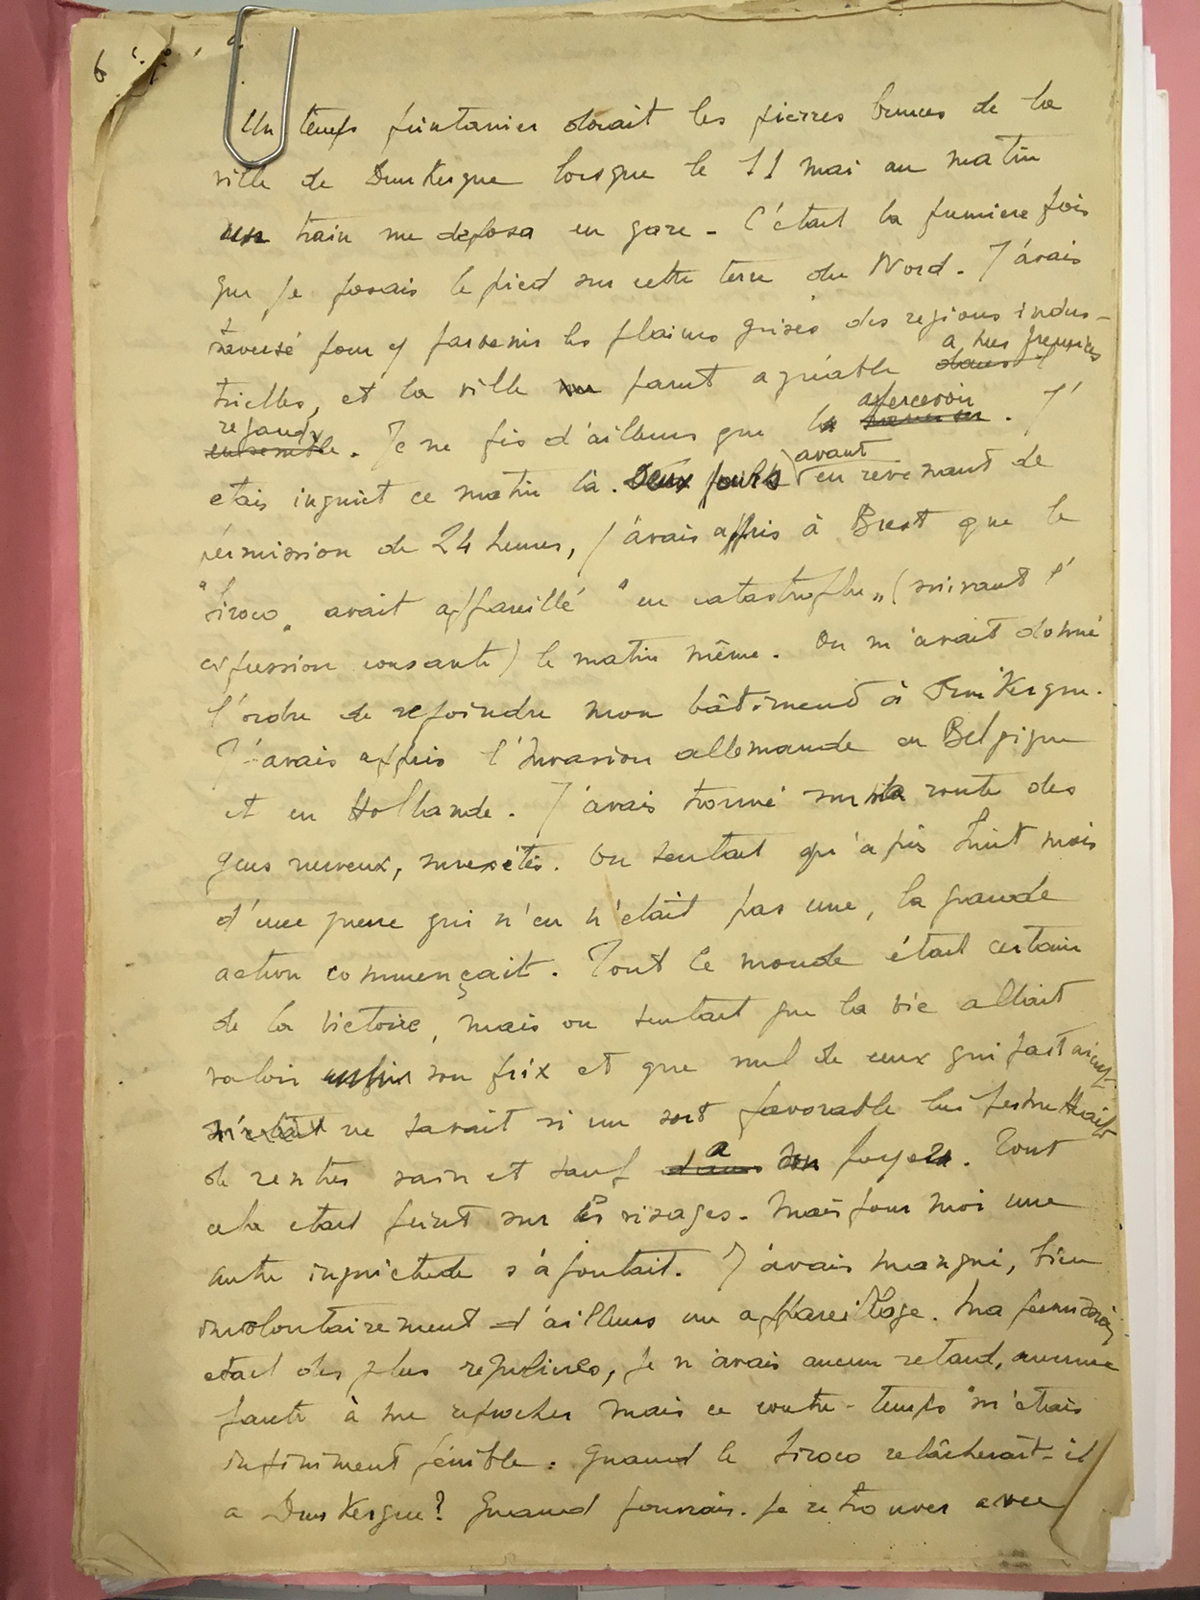 6
Un temps printanier dorait les pierres brunes de la
ville de Dunkerque lorsque le 11 mai au matin
un train me deposa en gare - C'était la premiere fois
que je posais le pied sur cette terre du Nord. J'avais
traversé pour y parvenir les plaines grises des regions indus-
trielles, et la ville me parut agréable a mes premiers
regards. Je ne fis d'ailleurs que l' apercevoir. J'
etais inquiet ce matin là. Deux jours avant en revenant de
permission de 24 heures, j'avais appris à Brest que le
"Siroco" avait appareillé "en catastrophe" (suivant l'
expression consacrée) le matin même. On m'avait donné
l'ordre de rejoindre mon bâtiment à Dunkerque.
J'avais appris l'invasion allemande en Belgique
et en Hollande. J'avais trouvé sur la route des
gens nerveux, surexcités. On sentait qu'après huit mois
d'une guerre qui n'en n'était pas une, la grande
action commençait. Tout le monde était certain
de la victoire, mais on sentait que la vie allait
valoir enfin son prix et que nul de ceux qui partaient
ne savait si un sort favorable lui permettrait
de rentrer sain et sauf a son foyer. Tout
cela etait peint sur les visages. Mais pour moi une
autre inquietude s'ajoutait. J'avais manqué, bien
involontairement d'ailleurs un appareillage. Ma permission
etait des plus regulieres, je n'avais aucun retard, aucune
faute à me reprocher mais ce contre-temps m'etais
infiniment pénible. Quand le Siroco relâcherait-il
a Dunkerque? Quand pourrais-je retrouver avec